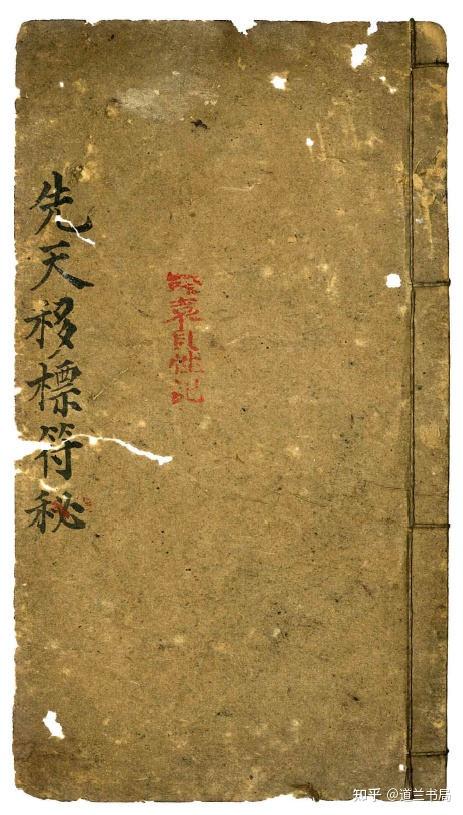 先天移標符秘
記
知乎 @道兰书局